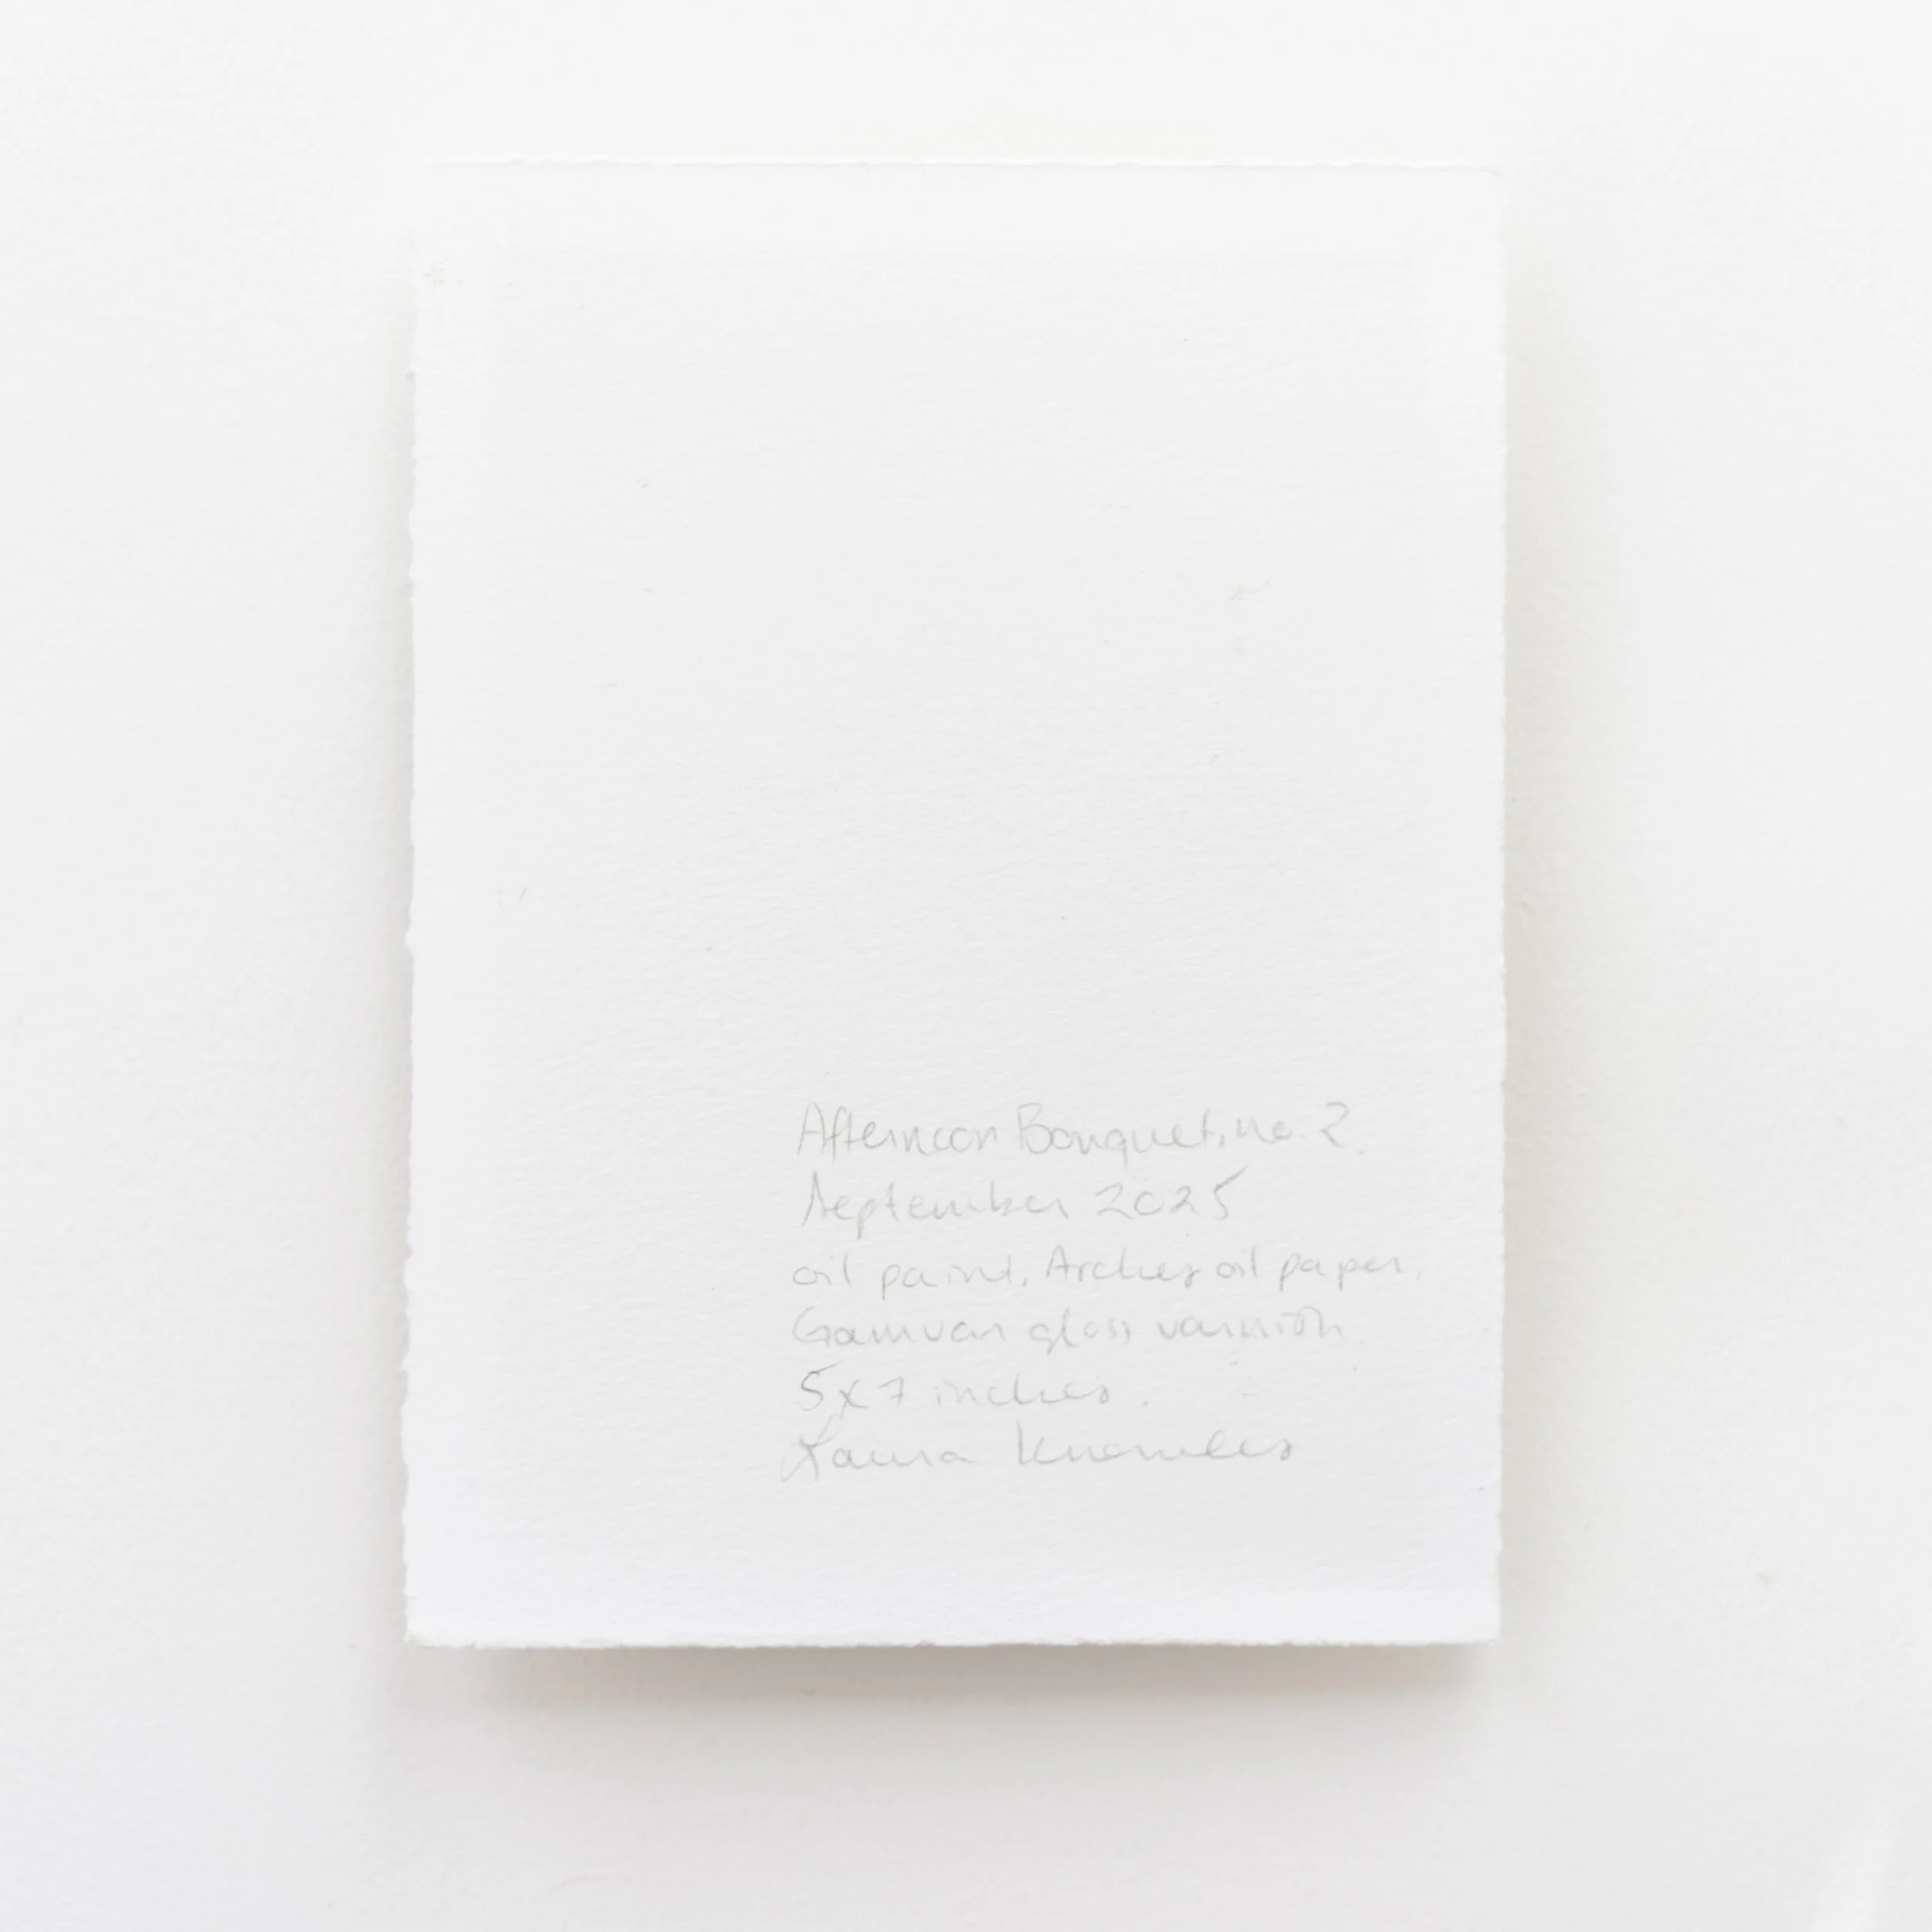 Afternoon Bouquet, no. 2.
September 2025
oil paint, Arches oil paper,
Gamvar gloss varnish.
5x7 inches.
Laura